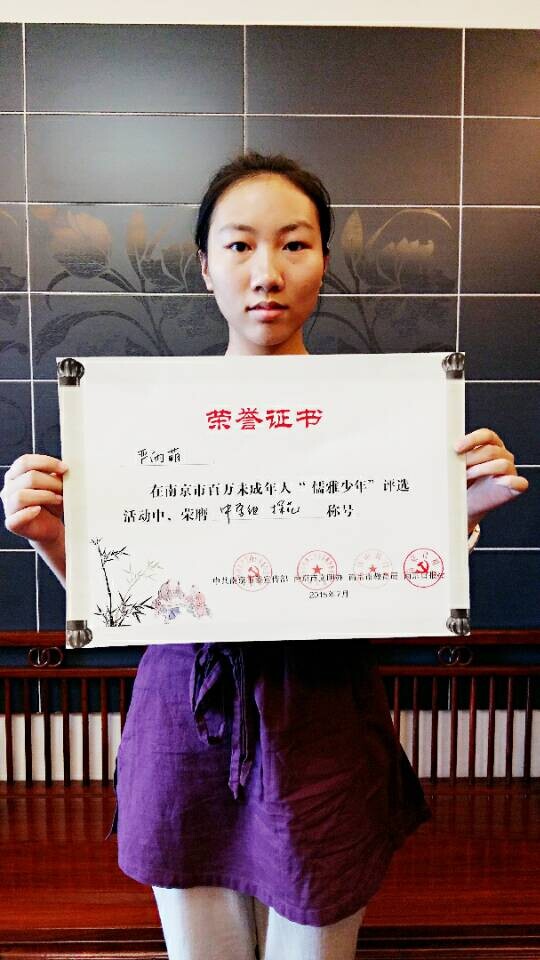 荣誉证书
严雨萌
在南京市百万未成年人“儒雅少年”评选
活动中，荣膺 中学组 探花 称号
中共南京市委宣传部 南京市文明办 南京市教育局 南京日报社
2015年7月